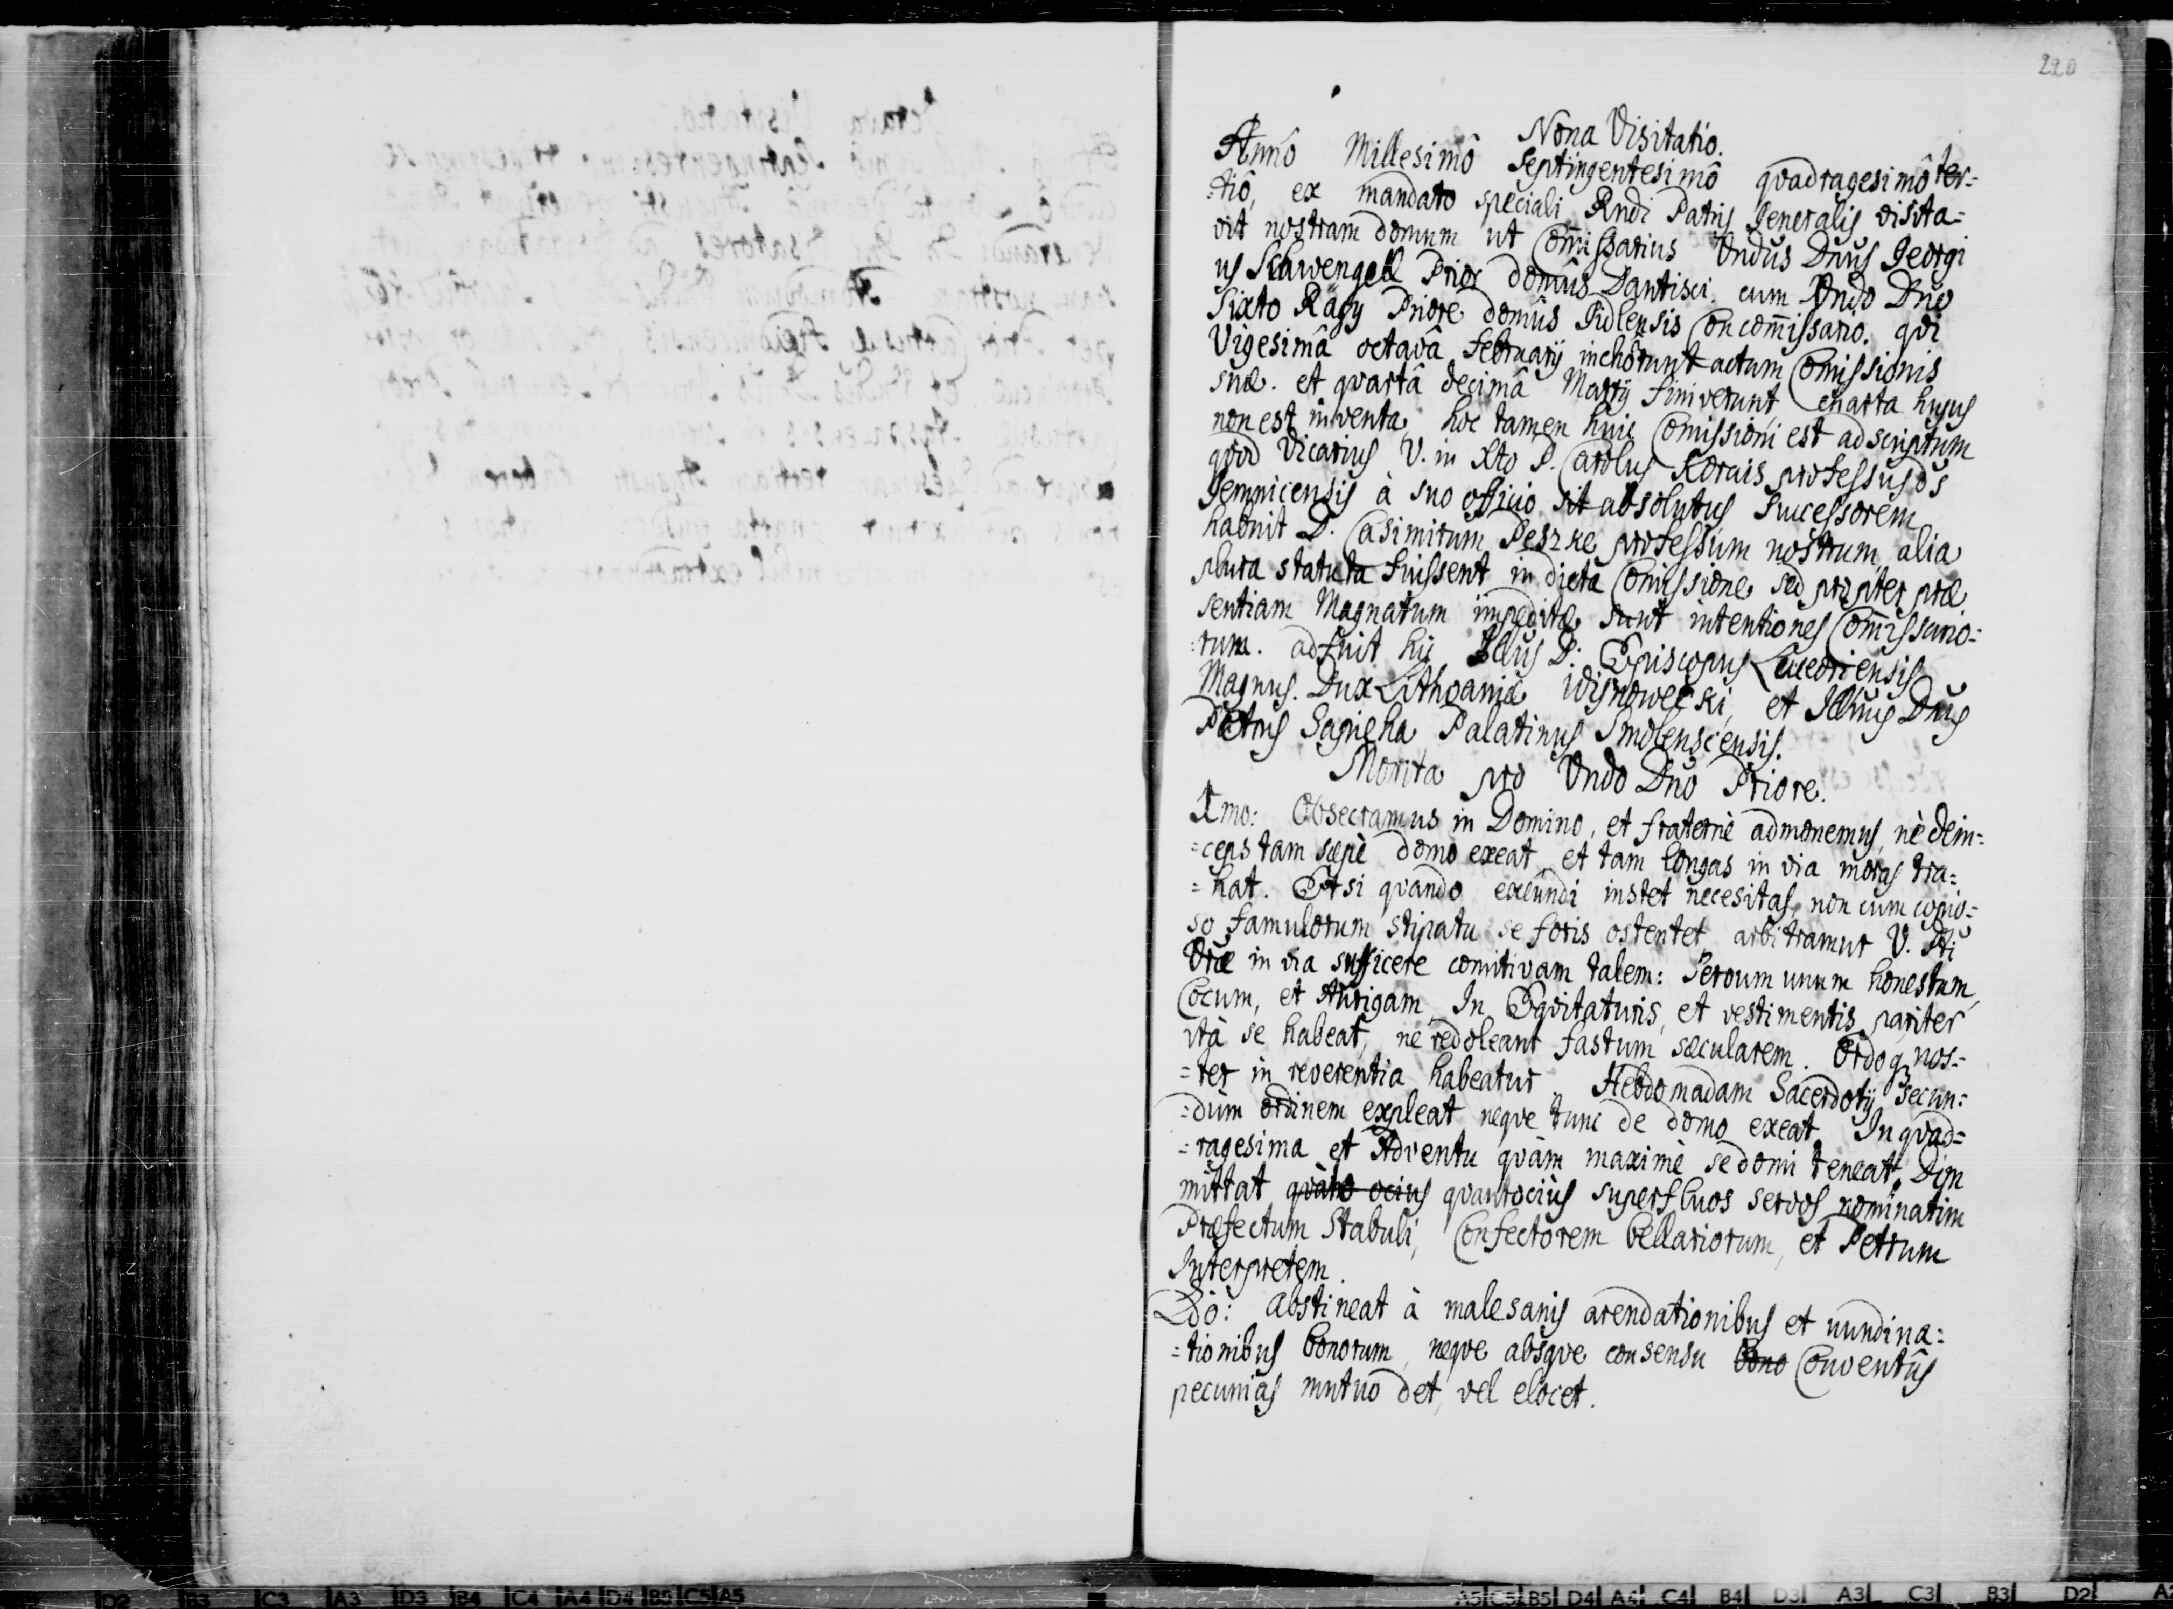 220
Nona Visitatio.
Annô Millesimô Septingentesimô quadragesimô ter=
=tiô, ex mandato speciali Rndi Patris Generalis visita=
vit nostram domum ut Com̃issarius Vndus Dnus Georgi
us Schwengell Prior domûs Dantisci cum Vndo Dno
Sixto Ragy Priore domûs Gidlensis Concom̃issario. qvi
Vigesimâ octavâ Februarij inchôrunt actum Comissionis
suæ. et qvartâ decimâ Martij finiverunt, charta hujus
non est inventa, hoc tamen huic Comissioni est adscriptum
qvod Vicarius V. in Xto P. Carolus Korais professus dûs
Gemnicensis à suo officio sit absolutus Successorem
habuit D. Casimirum Peszke professum nostrum, alia
plura statuta fuissent in dicta Comissione, sed propter præ
sentiam Magnatum impeditæ sunt intentiones Com̃issario=
=rum. adfuit hic Illus D: Episcopus Luceoriensis
Magnus. Dux Lithvaniæ Wisnowecki, et Illmus Dnus
Petrus Sapieha Palatinus Smolenscensis.
Monita pro Vndo Dno Priore.
Imo: Obsecramus in Domino, et fraternè admonemus, nè dein=
=ceps tam sæpè domo exeat, et tam longas in via moras tra=
=hat. Et si quando exeundi instet necesitas, non cum copio=
so famulorum stipatu se foris ostentet, arbitramur V. Pti
Vræ in via sufficere comitivam talem: Servum unum honestum,
Cocum, et Aurigam. In Eqvitaturis, et vestimentis pariter
ità se habeat, ne redoleant fastum sæcularem. Ordoq nos=
=ter in reverentia habeatur. Hebdomadam Sacerdotij secun=
=dùm ordinem expleat neqve tunc de domo exeat. In qvad=
=ragesima et Adventu qvàm maximè se domi teneat. Dim
mittat qvanto ocius qvantociùs superfluos servos nominatim
Præfectum Stabuli, Confectorem bellariorum, et Petrum
Interpretem.
2dò: Abstineat à malesanis arendationibus et nundina=
=tionibus bonorum, neqve absqve consensu bono Conventûs
pecunias mutuò det, vel elocet.